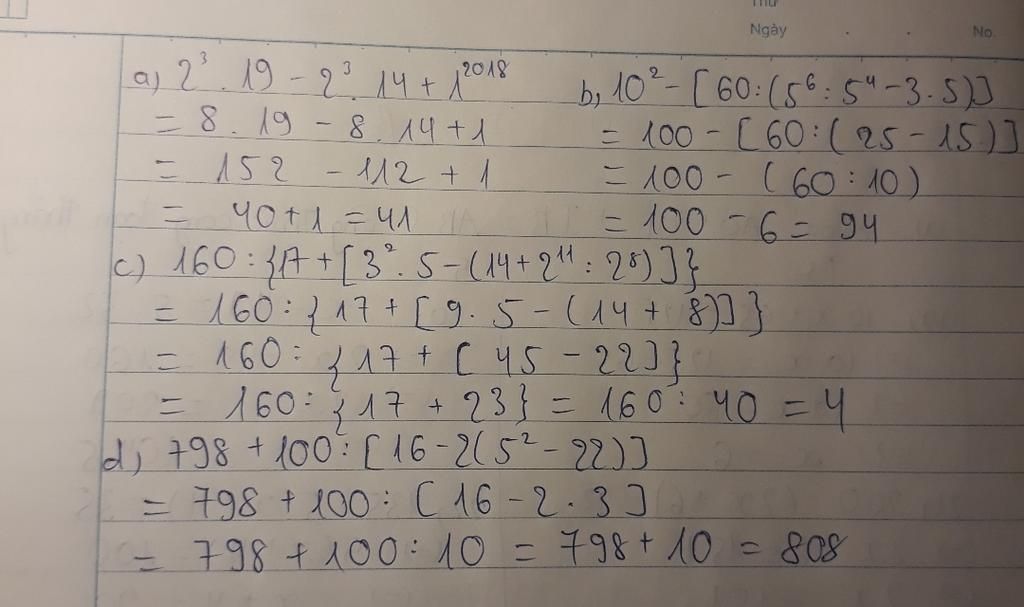 Thứ
Ngày . . No.
a) 2³ . 19 - 2³ . 14 + 1²⁰¹⁸
= 8 . 19 - 8 . 14 + 1
= 152 - 112 + 1
= 40 + 1 = 41
b, 10² - [60 : (5⁶ : 5⁴ - 3 . 5)]
= 100 - [60 : (25 - 15)]
= 100 - (60 : 10)
= 100 - 6 = 94
c) 160 : {17 + [3² . 5 - (14 + 2¹¹ : 2⁸)]}
= 160 : {17 + [9 . 5 - (14 + 8)]}
= 160 : {17 + [45 - 22]}
= 160 : {17 + 23} = 160 : 40 = 4
d, 798 + 100 : [16 - 2(5² - 22)]
= 798 + 100 : [16 - 2 . 3]
= 798 + 100 : 10 = 798 + 10 = 808